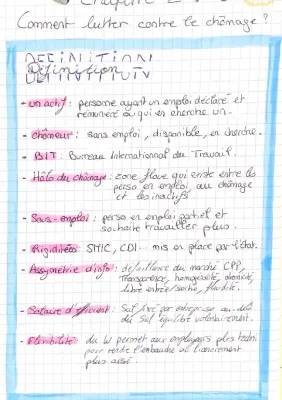 Comment lutter contre le chômage ?
DEFINITION
Définition
- un actif : personne ayant un emploi déclaré et
rémunéré ou qui en cherche un.
- chômeur : sans emploi, disponible, en cherche.
- BIT : Bureau International du Travail.
- Halo du chômage : zone floue qui existe entre les
perso en emploi, au chômage
et les inactifs
- Sous-emploi : perso en emploi partiel et
souhaite travailler plus.
- Rigidités : SMIC, CDI... mis en place par l'état.
- Assymétrie d'info : défaillance du marché CPP,
Transparence, homogénéité, atomicité,
libre entrée/sortie, fluidité.
- Salaire d'efficient : Sal fixé par entreprise au-delà
du Sal équilibre volontairement.
- Flexibilité : du W permet aux employeurs plus
pour rendre l'embauche ou licenciement
plus aisé.